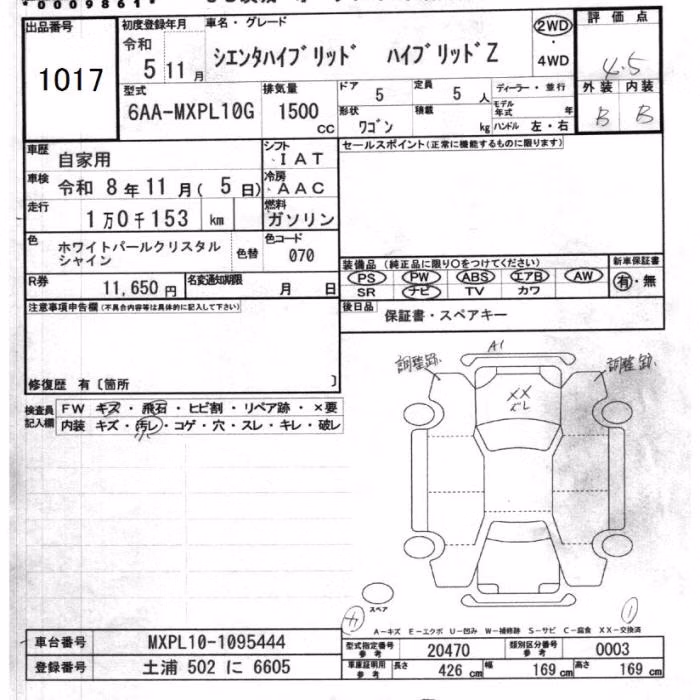 *0009861*
出品番号
1017
初度登録年月
令和
5 11 月
車名・グレード
シエンタハイブリッド ハイブリッドZ
2WD
・
4WD
評価点
4.5
外装 内装
B B
型式
6AA-MXPL10G
排気量
1500
cc
ドア
5
定員
5 人
ディーラー・並行
形状
ワゴン
積載
kg
モデル年式
年
ハンドル 左・右
車歴
自家用
シフト
IAT
車検
令和 8 年 11 月( 5 日)
冷房
AAC
走行
1 万 0 千 153 km
燃料
ガソリン
色
ホワイトパールクリスタル
シャイン
色替
色コード
070
R券
11,650 円
名変通知期限
月 日
セールスポイント(正常に機能するものに限ります)
装備品 (純正品に限り○をつけてください)
PS PW ABS エアB AW
SR ナビ TV カワ
新車保証書
有・無
後日品
保証書・スペアキー
注意事項申告欄(不具合内容等は具体的に記入して下さい)
修復歴 有〔箇所 〕
検査員
記入欄
FW キズ・飛石・ヒビ割・リペア跡・×要
内装 キズ・汚レ・コゲ・穴・スレ・キレ・破レ
A1
調整跡
調整跡
XX
ズレ
スペア
A-キズ E-エクボ U-凹み W-補修跡 S-サビ C-腐食 XX-交換済
車台番号
MXPL10-1095444
登録番号
土浦 502 に 6605
型式指定番号
参考
20470
類別区分番号
参考
0003
車庫証明用
参考
長さ
426 cm
幅
169 cm
高さ
169 cm